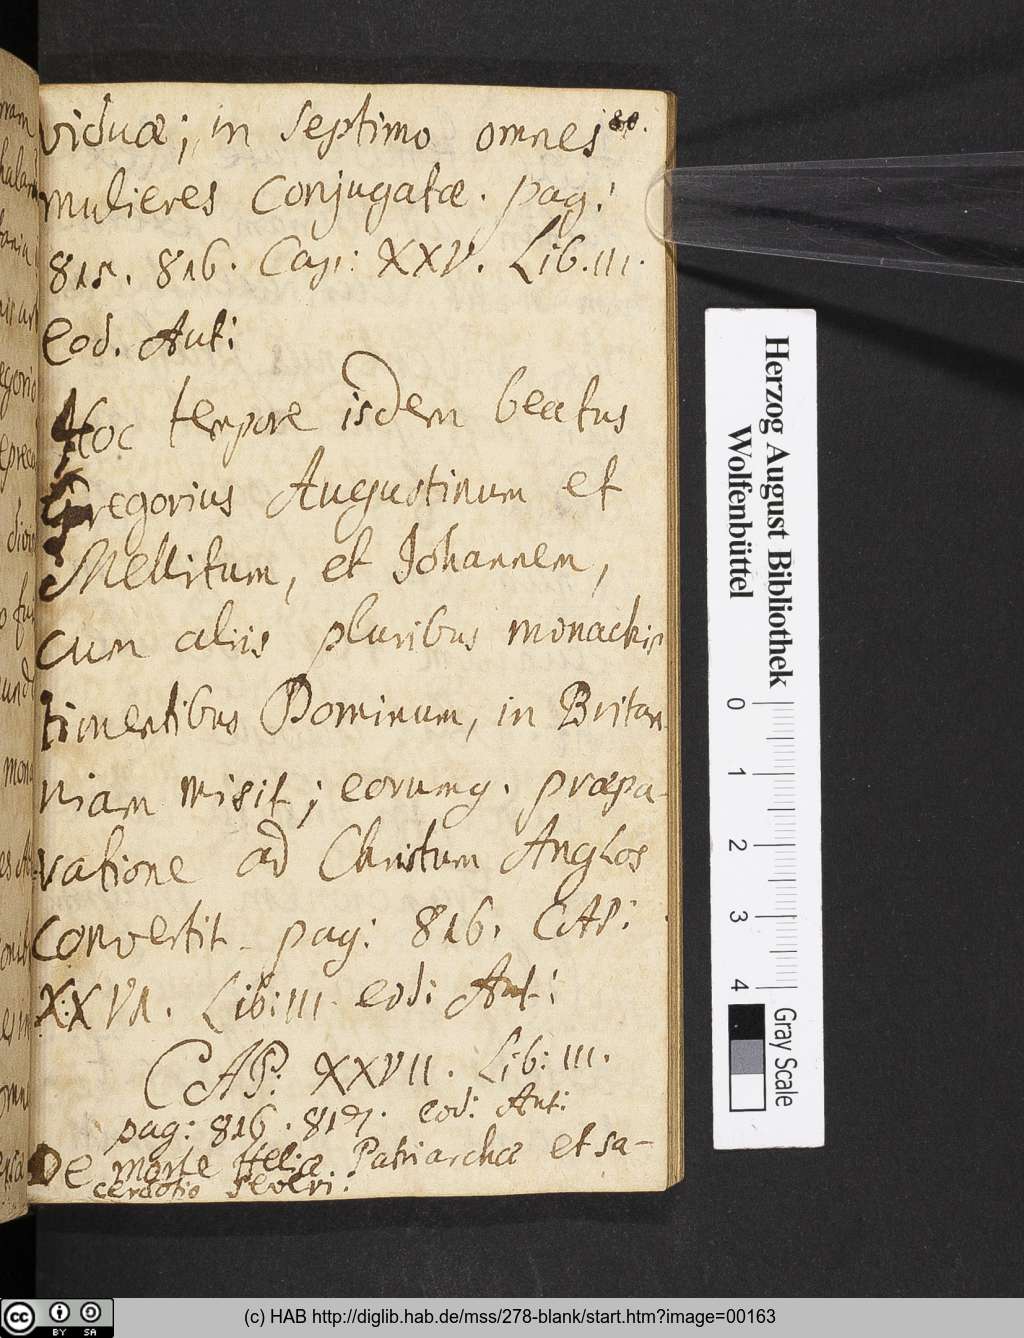 80.
viduæ; in septimo omnes
mulieres conjugatæ. pag:
815. 816. Cap: XXV. Lib. III.
Eod. Aut:
Hoc tempore isdem beatus
Gregorius Augustinum et
Mellitum, et Johannem,
cum aliis pluribus monachis
timentibus Dominum, in Britan
niam misit; eorumq. præpa-
ratione ad Christum Anglos
convertit. pag: 816. CAP:
XXVI. Lib: III. eod: Aut:
CAP: XXVII. Lib: III.
pag: 816. 817. eod: Aut:
De morte Heliæ Patriarchæ et sa-
cerdotio Severi.
Herzog August Bibliothek
Wolfenbüttel
0 1 2 3 4
Gray Scale
cc BY SA
(c) HAB http://diglib.hab.de/mss/278-blank/start.htm?image=00163